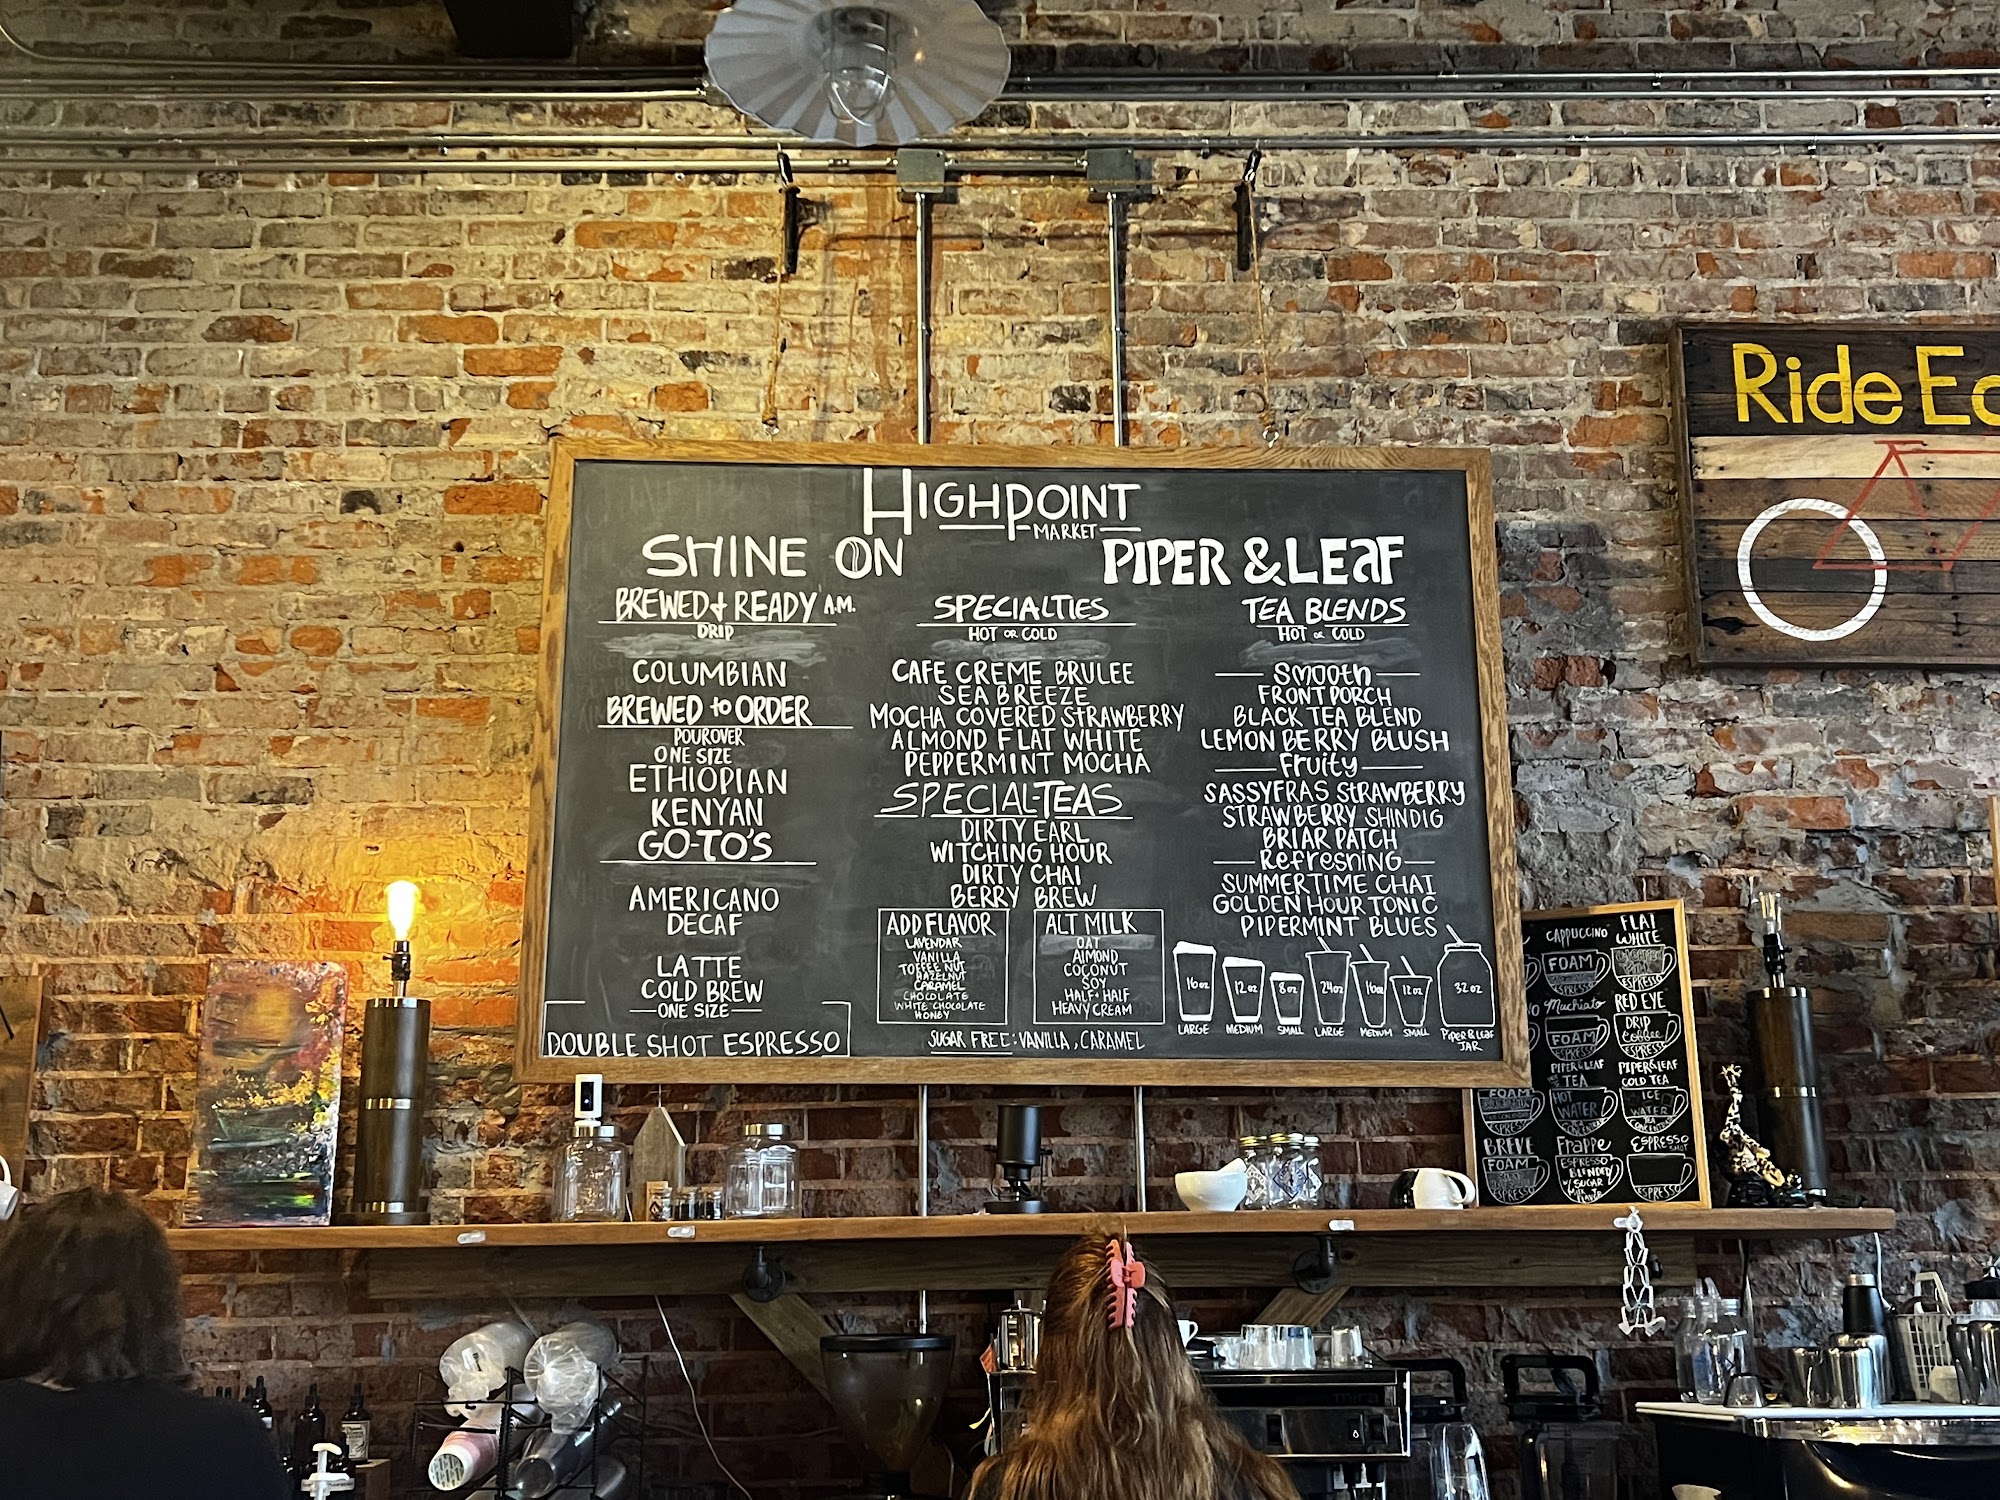 HIGHPOINT
MARKET
SHINE ON
PIPER & LEAF
BREWED & READY A.M.
DRIP
COLUMBIAN
BREWED to ORDER
POUROVER
ONE SIZE
ETHIOPIAN
KENYAN
GO-TO'S
AMERICANO
DECAF
LATTE
COLD BREW
ONE SIZE
DOUBLE SHOT ESPRESSO
SPECIALTIES
HOT OR COLD
CAFE CREME BRULEE
SEA BREEZE
MOCHA COVERED STRAWBERRY
ALMOND FLAT WHITE
PEPPERMINT MOCHA
SPECIAL-TEAS
DIRTY EARL
WITCHING HOUR
DIRTY CHAI
BERRY BREW
ADD FLAVOR
LAVENDAR
VANILLA
TOFFEE NUT
HAZELNUT
CARAMEL
CHOCOLATE
WHITE CHOCOLATE
HONEY
ALT MILK
OAT
ALMOND
COCONUT
SOY
HALF + HALF
HEAVY CREAM
SUGAR FREE: VANILLA, CARAMEL
TEA BLENDS
HOT or COLD
Smooth
FRONT PORCH
BLACK TEA BLEND
LEMON BERRY BLUSH
Fruity
SASSYFRAS STRAWBERRY
STRAWBERRY SHINDIG
BRIAR PATCH
Refreshing
SUMMERTIME CHAI
GOLDEN HOUR TONIC
PIPERMINT BLUES
16 oz
12 oz
8 oz
24 oz
16 oz
12 oz
32 oz
LARGE
MEDIUM
SMALL
LARGE
MEDIUM
SMALL
Piper & Leaf
JAR
Ride
CAPPUCCINO
FLAT
WHITE
FOAM
ESPRESSO
ESPRESSO
Machiato
RED EYE
FOAM
ESPRESSO
DRIP
Coffee
ESPRESSO
PIPER & LEAF
TEA
PIPER & LEAF
COLD TEA
FOAM
HOT
WATER
ICE
WATER
TEA
CONCENTRATE
BREVE
Frappe
ESPRESSO
SHOT
FOAM
ESPRESSO
ESPRESSO
BLENDED
W/ SUGAR
ESPRESSO